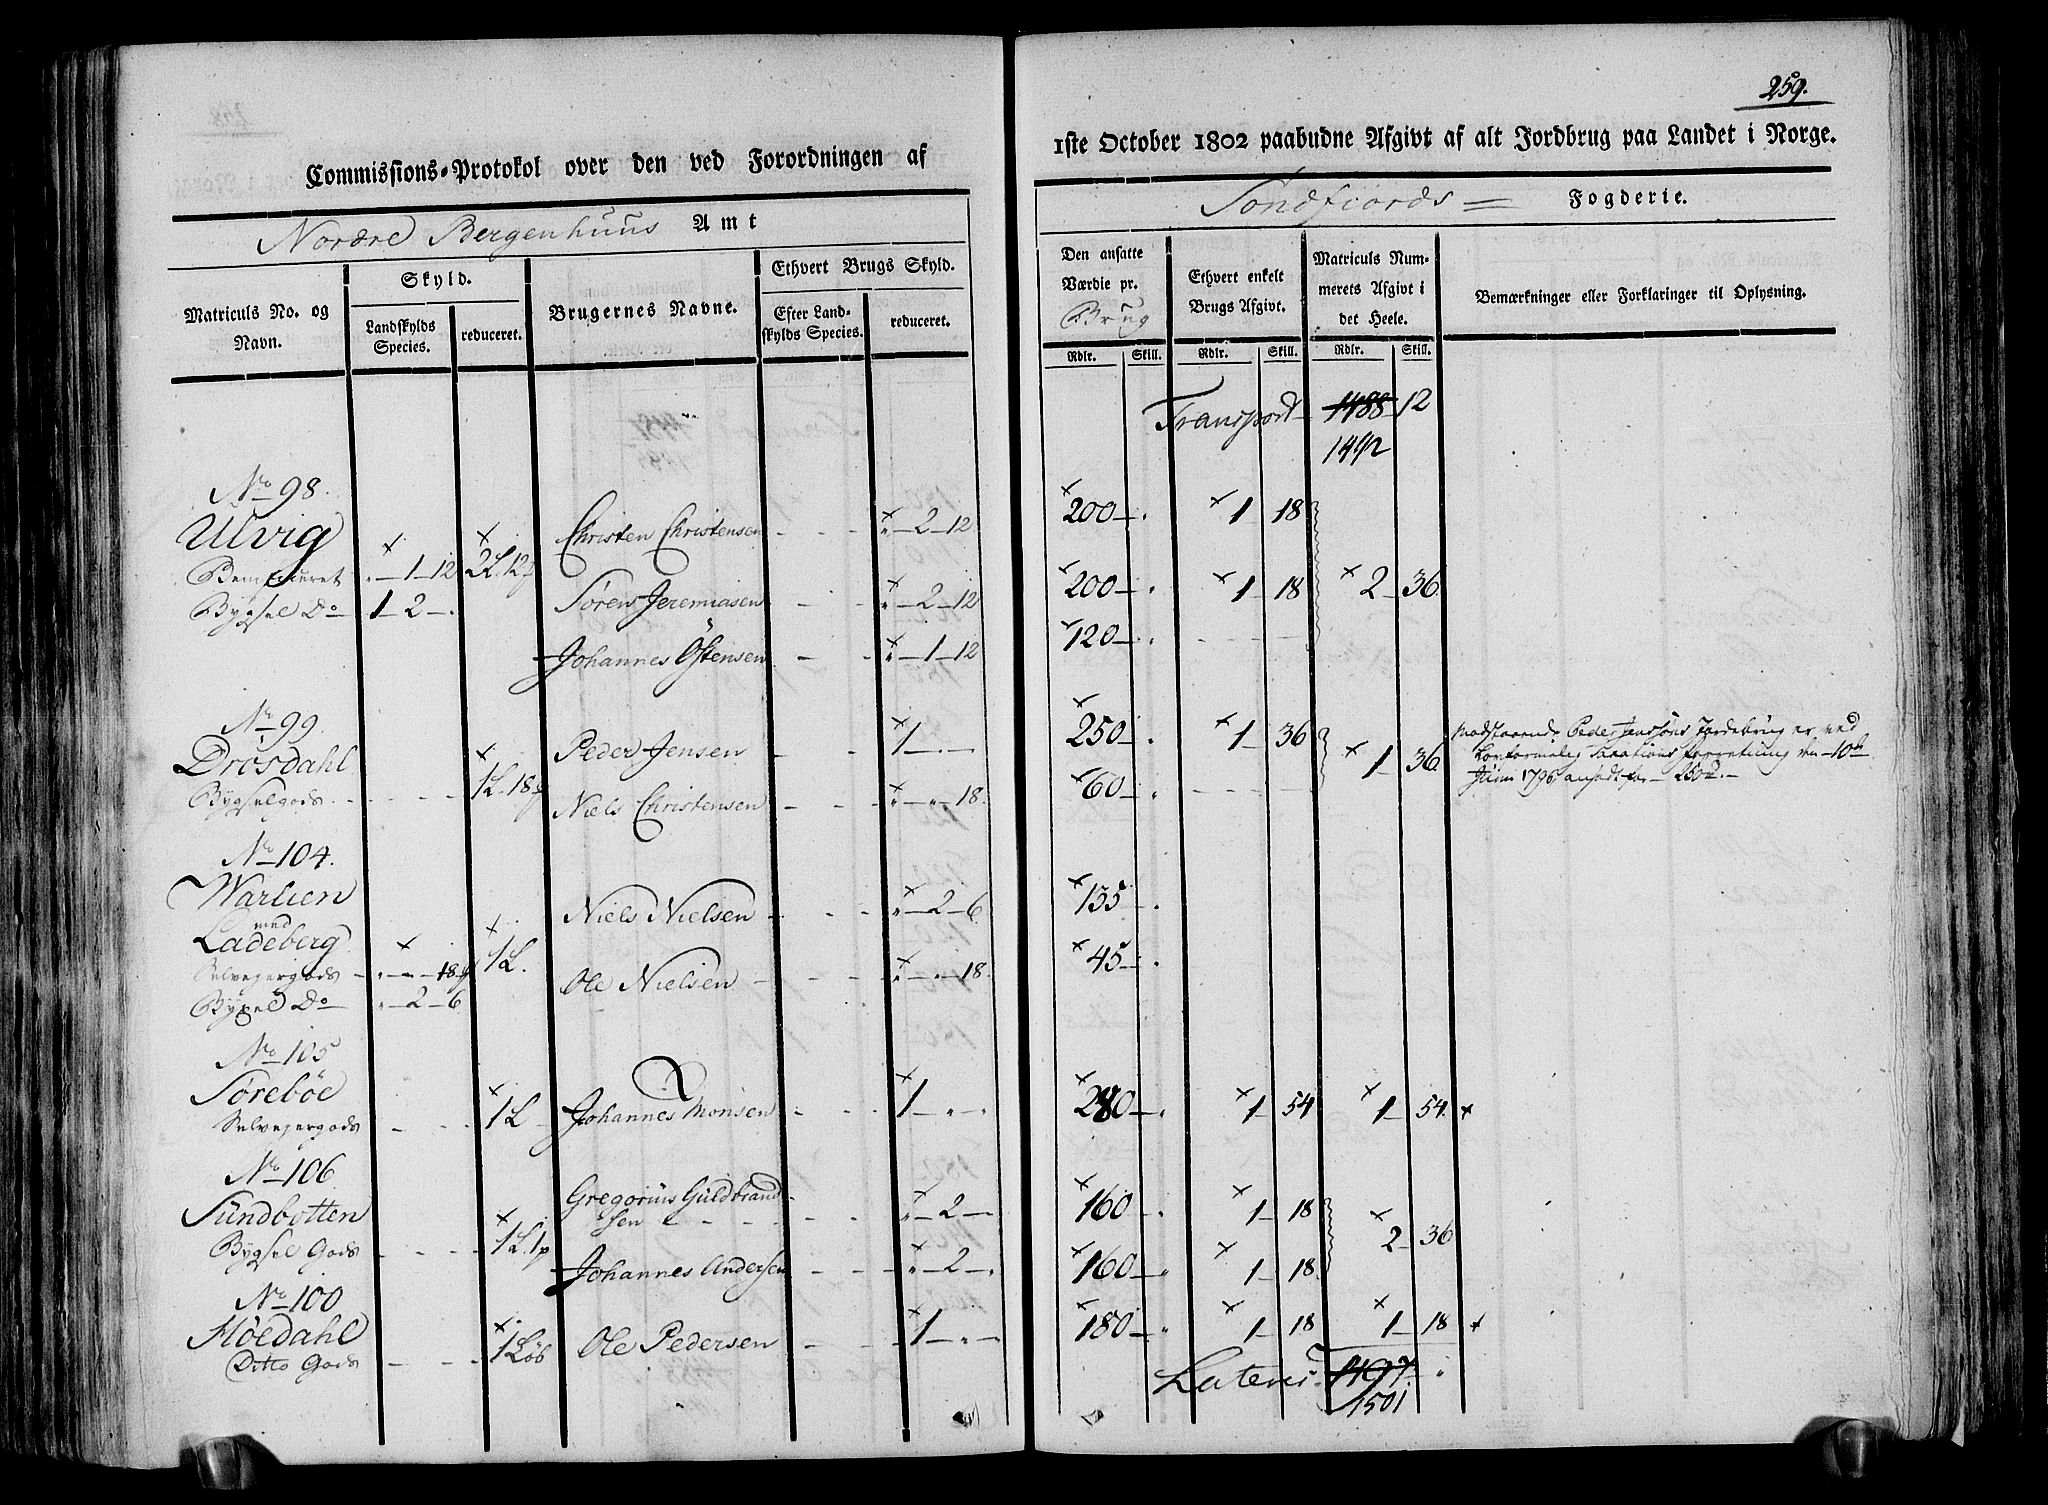 259.
Commissions-Protokol over den ved Forordningen af
1ste October 1802 paabudne Afgivt af alt Jordbrug paa Landet i Norge.
Nordre Bergenhuus Amt
Søndfiords = Fogderie.
Matriculs No. og Navn.
Skyld.
Landskylds Species.
reduceret.
Brugernes Navne.
Ethvert Brugs Skyld.
Efter Landskylds Species.
reduceret.
Den ansatte Værdie pr. Brug
Rdlr. Skill.
Ethvert enkelt Brugs Afgivt.
Rdlr. Skill.
Matriculs Nummerets Afgivt i det Heele.
Rdlr. Skill.
Bemærkninger eller Forklaringer til Oplysning.
Transport 1488 12
1492
No 98.
Ulvig Christen Christensen - - - " 2 - 12 200 - " 1 18
Beneficeret " - 1 - 12 2L. 12
Bygsel Do 1 - 2 - " Søren Jeremiasen - - - " 2 - 12 200 - " 1 18 2 36
Johannes Østensen - - - " 1 - 12 120 - "
No 99.
Drosdahl Peder Jensen 1 - " - " 250 - " 1 36 1 36
Bygselgods - - - 1L. 18 Niels Christensen - - - " - " - 18. 60 - "
Modstaaende Peder Jensøns Jordebrug er ved
Conformelig Taxations Forretning den 10de
Junii 1796 ansadt for 250 rd.
No 104.
Warlien Niels Nielsen - - - " - 2 - 6 135 - "
med
Ladeberg 1L.
Selvejergods - " - " - 18 Ole Nielsen - - - " - " - 18. 45 - "
Bygsel Do " - 2 - 6
No 105
Sørebøe 1L Johannes Monsen - - - 1 - " - " 280 - " 1 54 1 54
Selvejergods
No 106
Sundbotten 1L. 1p Gregorius Guldbrand-
sen - - - " - 2 - 160 - " 1 18 2 36
Bygsel Gods Johannes Andersen - - - " - 2 - " 160 - " 1 18
No 100
Høedahl 1 Løb Ole Pedersen - - - 1 - " - " 180 - " 1 18 1 18
Ditto Gods
Lateris 1497 "
1501